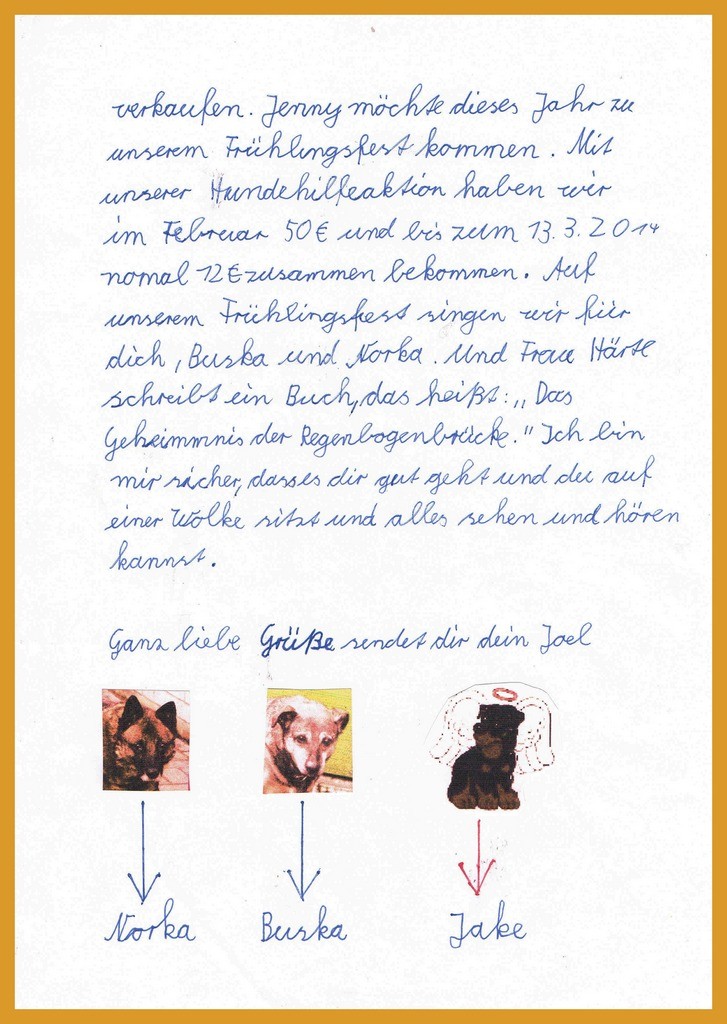 verkaufen. Jenny möchte dieses Jahr zu
unserem Frühlingsfest kommen. Mit
unserer Hundehilfeaktion haben wir
im Februar 50 € und bis zum 13. 3. 2014
nomal 12 € zusammen bekommen. Auf
unserem Frühlingsfest singen wir für
dich, Buska und Norka. Und Frau Härtl
schreibt ein Buch, das heißt: „Das
Geheimmnis der Regenbogenbrücke." Ich bin
mir sicher, dass es dir gut geht und du auf
einer Wolke sitzt und alles sehen und hören
kannst.
Ganz liebe Grüße sendet dir dein Joel
Norka Buska Jake